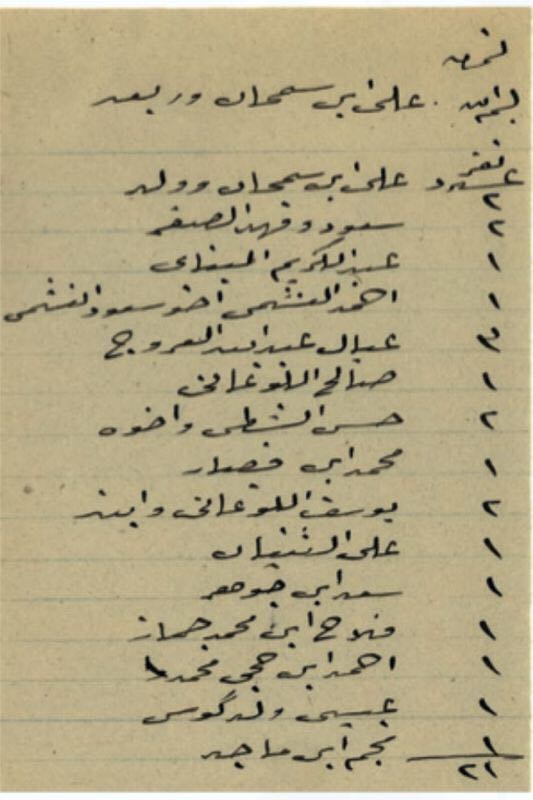 بسم الله . علي ابن سمحان وربعه
نفر
عدد علي ابن سمحان وولده
٢
٢ سعود وفهد الصقر
١ عبدالكريم
١ احمد الغشمي اخو سعود الغشمي
٣ عيال عبدالله العروج
١ صالح اللوغاني
٢ حسن الشطي واخوه
١ محمد ابن
٢ يوسف اللوغاني وابنه
١ علي الثنيان
١ سعد ابن جوهر
١ فلاح ابن محمد جماز
١ احمد ابن حجي محمد
١ عيسى ولد گوس
١ نجم ابن ماجد
٢١